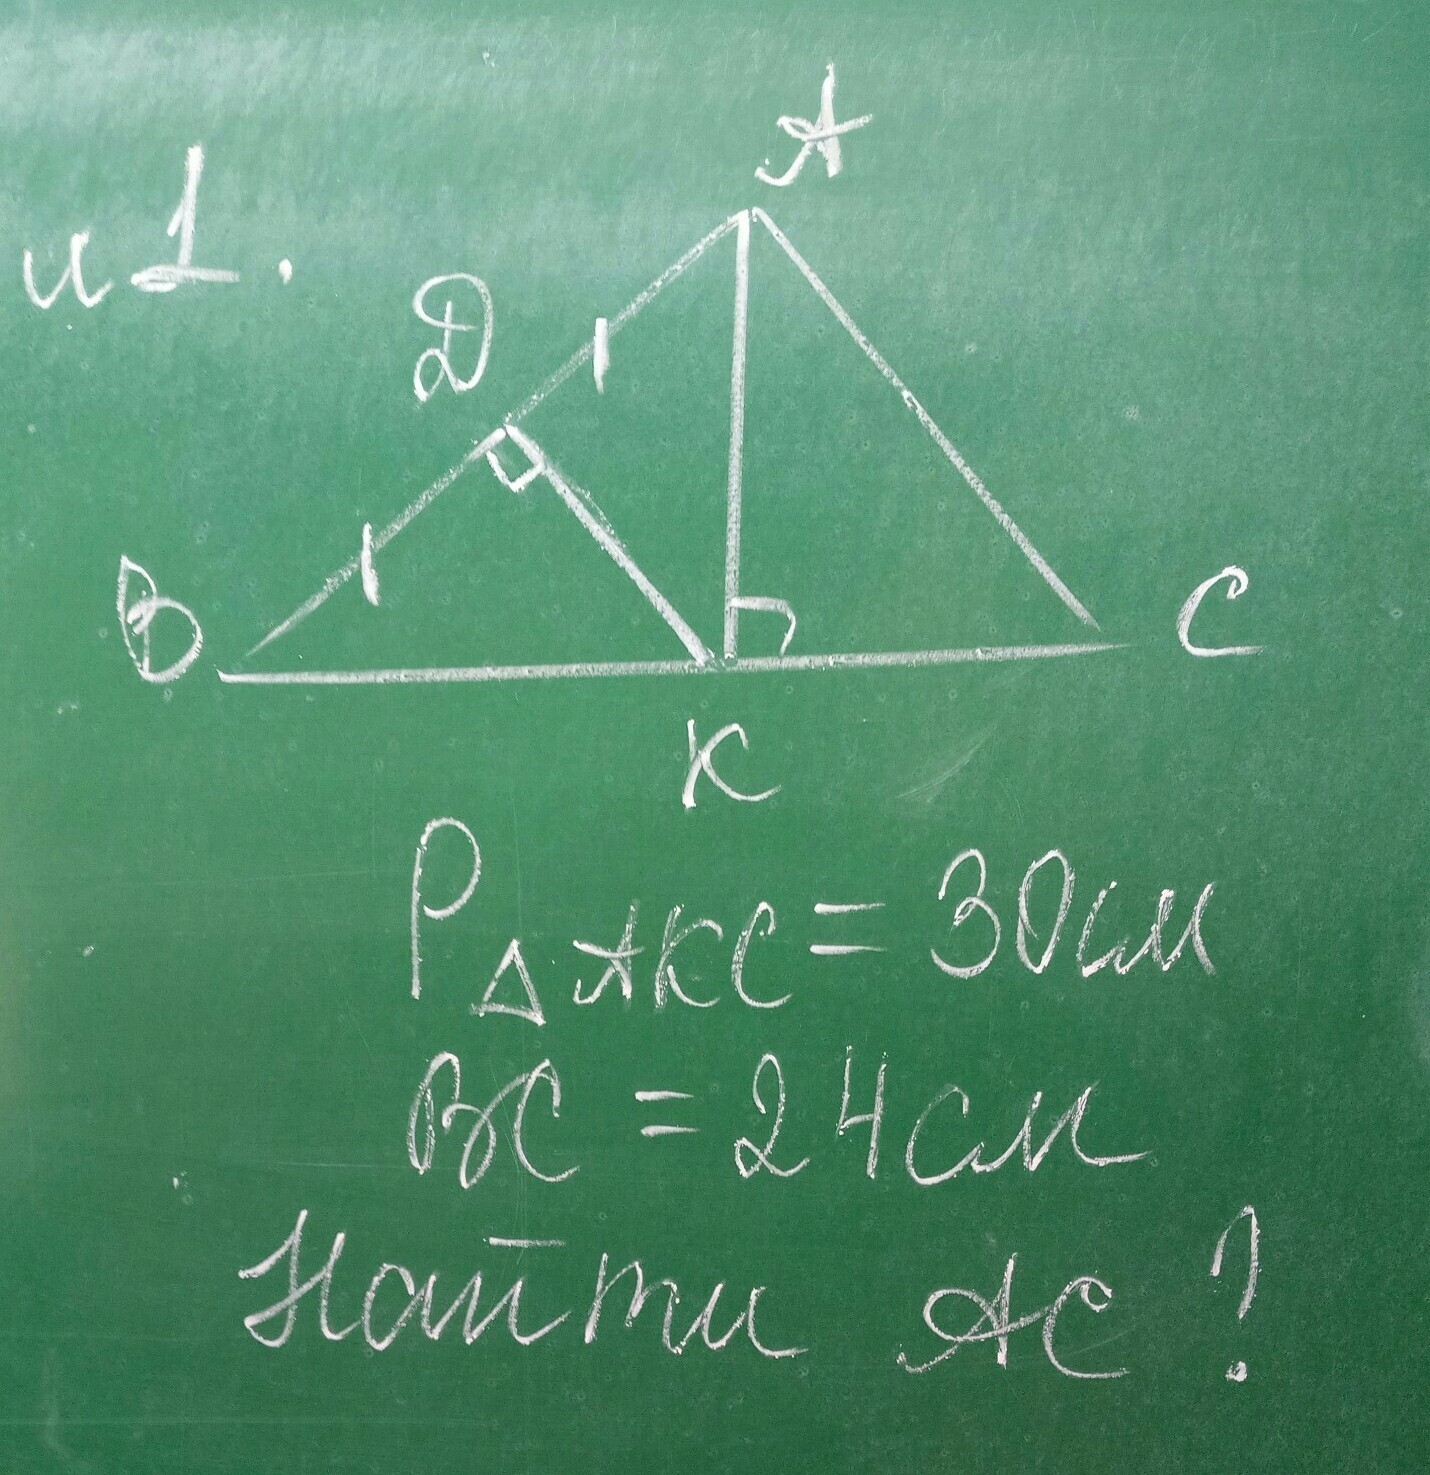 и1.
A
D
B
C
K
P△AKC = 30см
BC = 24см
Найти AC?